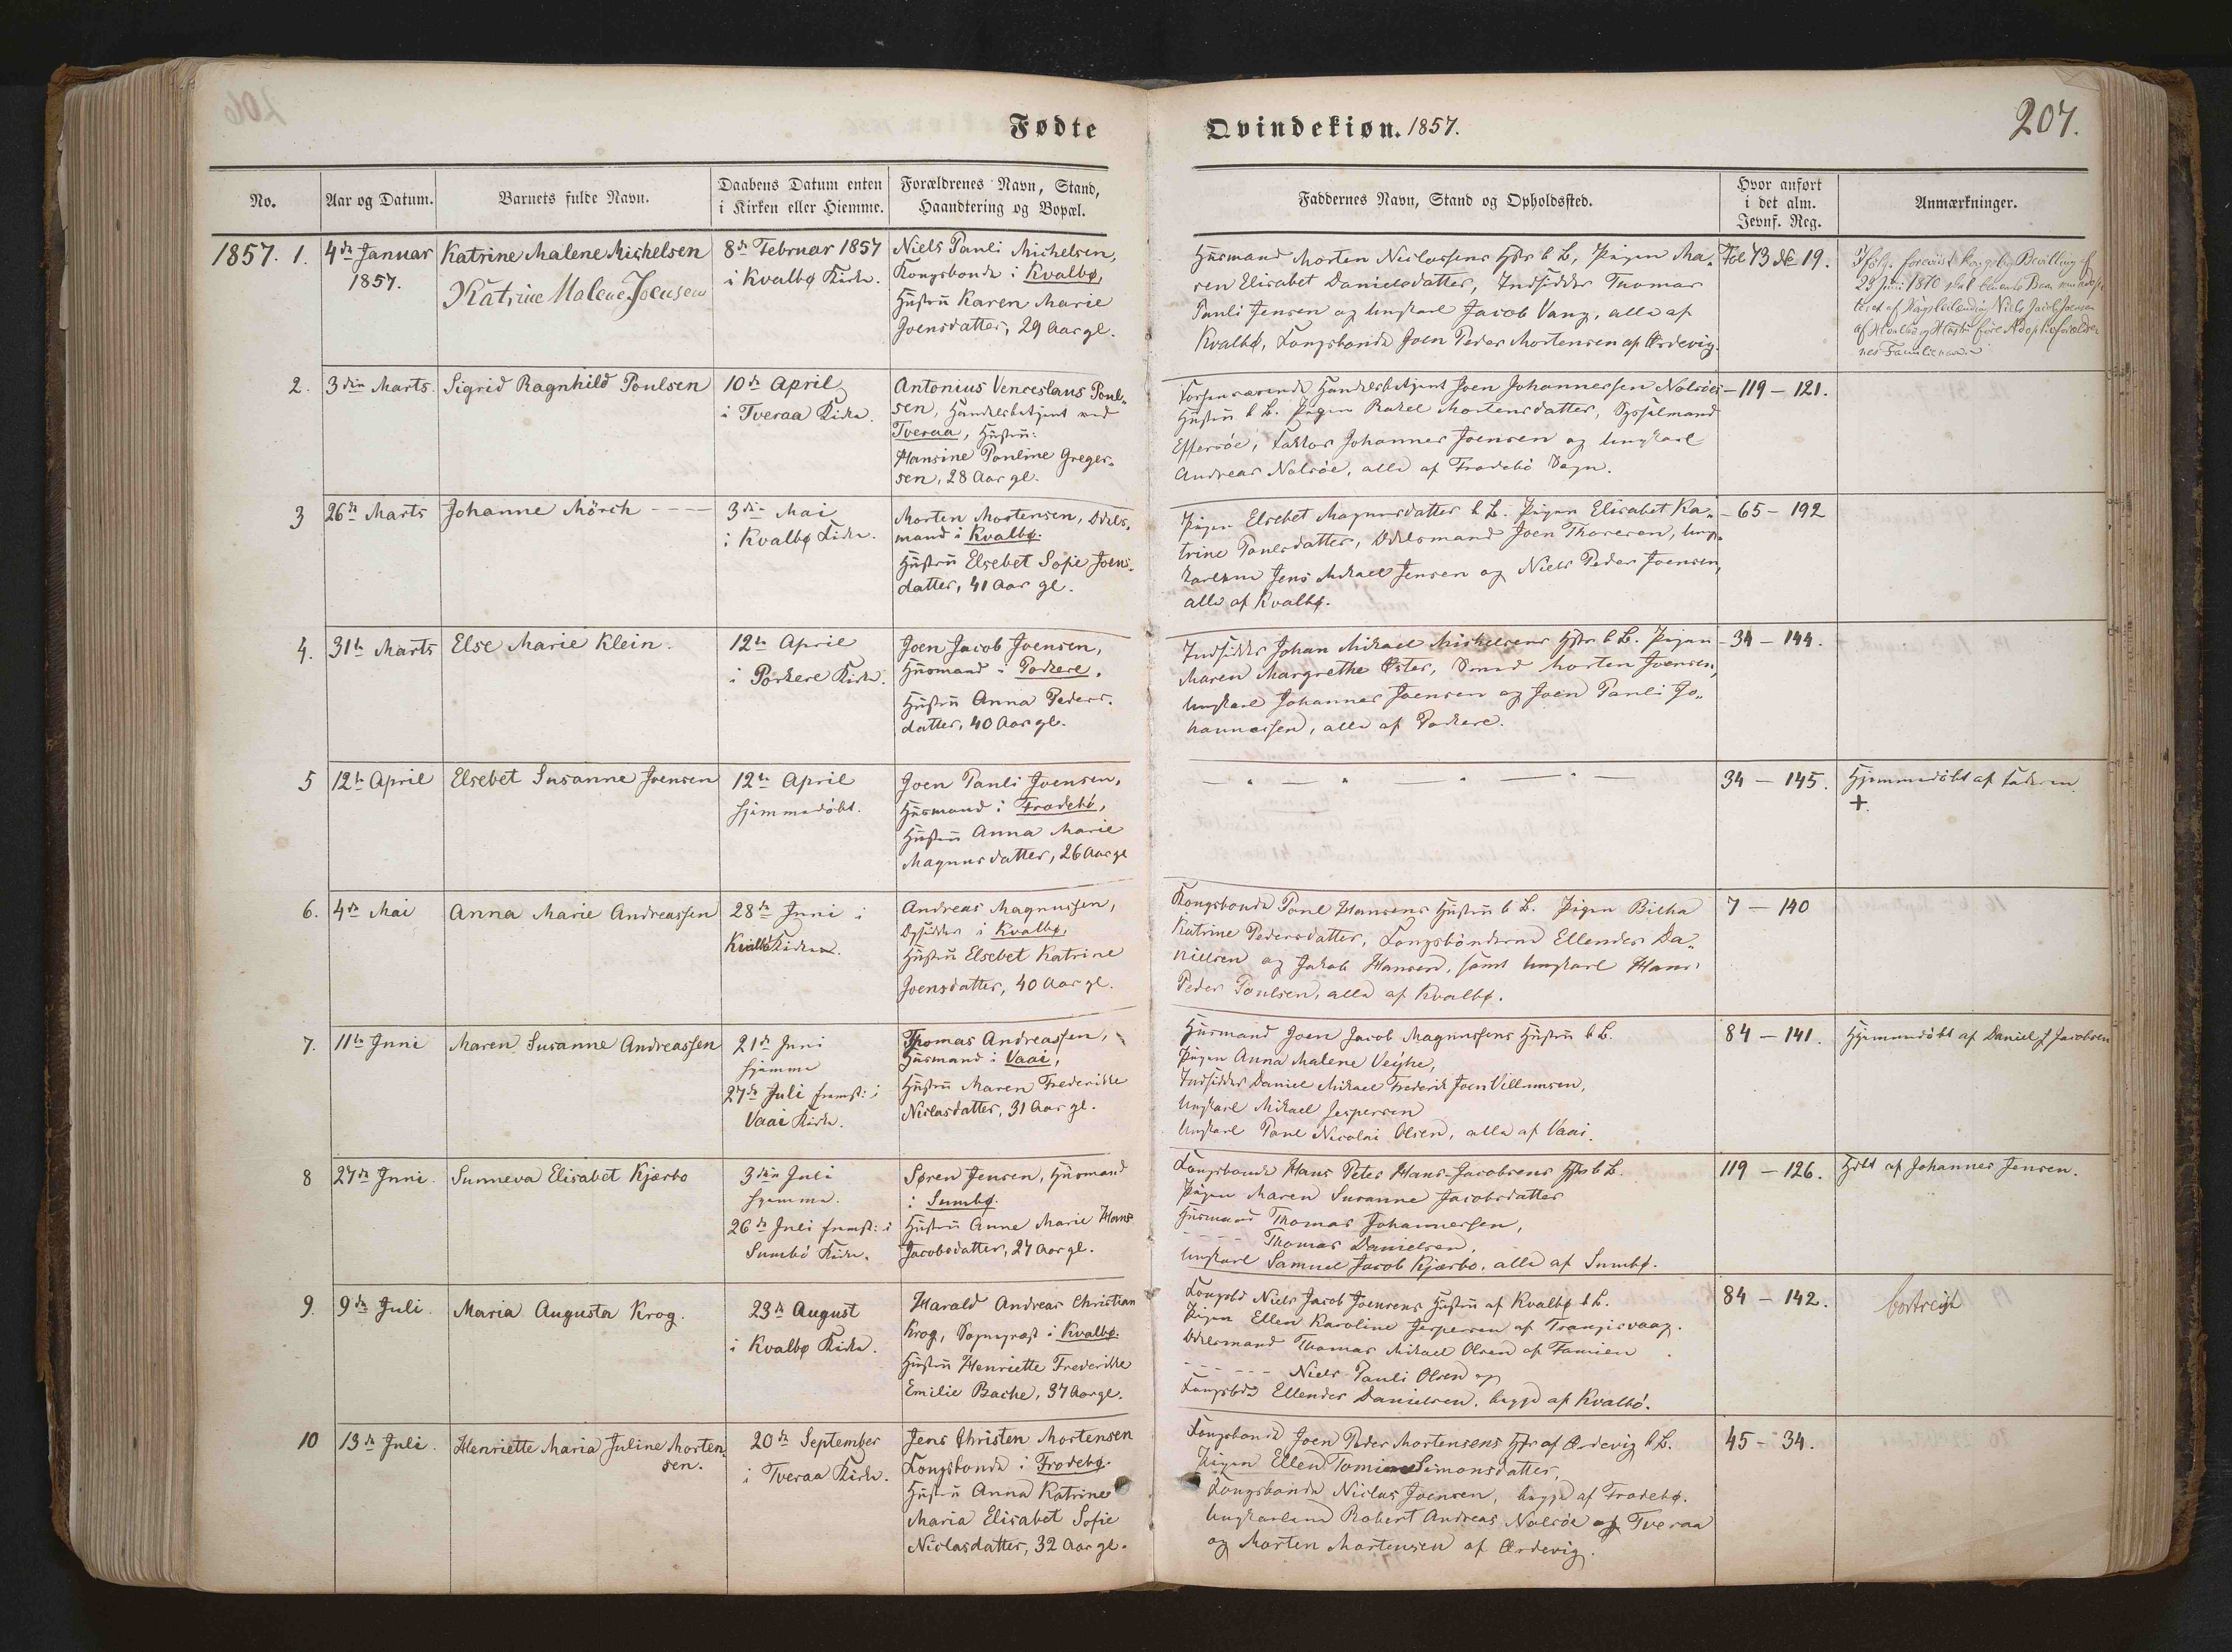 Fødte
Qvindekiøn. 1857.
207.
No.
Aar og Datum.
Barnets fulde Navn.
Daabens Datum enten
i Kirken eller Hiemme.
Forældrenes Navn, Stand,
Haandtering og Bopæl.
Faddernes Navn, Stand og Opholdssted.
Hvor anført
i det alm.
Jevnf. Reg.
Anmærkninger.
1857. 1.
4de Januar
1857.
Katrine Malene Mickelsen
Katrine Malene Joensen
8de Februar 1857
i Kvalbø Kirke.
Niels Pauli Michelsen,
Kongsbonde i Kvalbø,
Hustru Karen Marie
Joensdatter, 29 Aar gl.
Husmand Morten Niclassens Hstr b. B., Pigen Ma-
ren Elisabet Danielsdatter, Indsidder Thomas
Pauli Jensen og Ungkarl Jacob Vang, alle af
Kvalbø, Kongsbonde Joen Peder Mortensen af Ørdevig.
Fol 73 № 19.
Ifølge foreviist Kongelig Bevilling af
23 Juni 1870 skal benævnte Barn
af Niels Jacob Joensen
af Kvalbø og Hustru føre Adoptivforældre-
nes Familienavn
2.
3die Marts.
Sigrid Ragnhild Poulsen
10de April
i Tveraa Kirke.
Antonius Venceslaus Poul-
sen, Handelsbetjent ved
Tveraa, Hustru:
Hansine Pouline Greger-
sen, 28 Aar gl.
Forhenværende Handelsbetjent Joen Johannessen Nolsöes
Hustru b. B. Pigen Rakel Mortensdatter, Sysselmand
Effersöe, Faktor Johannes Joensen og Ungkarl
Andreas Nolsöe, alle af Frodebö Sogn.
- 119 - 121.
3
26de Marts
Johanne Mörch ----
3die Mai
i Kvalbø Kirke.
Morten Mortensen, Odels-
mand i Kvalbø.
Hustru Elsebet Sofie Joens-
datter, 41 Aar gl.
Pigen Elsebet Magnusdatter b. B. Pigen Elisabet Ka-
trine Poulsdatter, Odelsmand Joen Thoresen, Ung-
karlene Jens Mikael Jensen og Niels Peder Joensen,
alle af Kvalbø.
- 65 - 192
4.
31te Marts
Else Marie Klein.
12te April
i Porkere Kirke.
Joen Jacob Joensen,
Husmand i Porkere.
Hustru Anna Peders-
datter, 40 Aar gl.
Indsidder Johan Mikael Mickelsens Hstr b. B. Pigen
Maren Margrethe Øster, Smed Morten Joensen,
Ungkarl Johannes Joensen og Joen Pauli Jo-
hannessen, alle af Porkere.
- 34 - 144.
5
12te April
Elsebet Susanne Joensen
12te April
hjemmedöbt.
Joen Pauli Joensen,
Husmand i Frodebö,
Hustru Anna Marie
Magnusdatter, 26 Aar gl
— " — " — " — " —
34 - 145.
Hjemmedöbt af Faderen.
+
6.
4de Mai
Anna Marie Andreassen
28de Juni i
Kvalbø Kirke.
Andreas Magnussen,
Opsidder i Kvalbø,
Hustru Elsebet Katrine
Joensdatter, 40 Aar gl.
Kongsbonde Poul Hansens Hustru b. B. Pigen Bilha
Katrine Pedersdatter, Kongsbönderne Ellender Da-
nielsen og Jakob Hansen, samt Ungkarl Hans
Peder Poulsen, alle af Kvalbø.
7 - 140
7.
11te Juni
Maren Susanne Andreassen
21de Juni
hjemme
27de Juli fremst: i
Vaai Kirke.
Thomas Andreassen,
Husmand i Vaai,
Hustru Maren Frederikke
Niclasdatter, 31 Aar gl.
Husmand Joen Jacob Magnussens Hustru b. B.
Pigen Anna Malene Veihe,
Indsidder Daniel Mikael Frederik Joen Villumsen,
Ungkarl Mikael Jespersen
Ungkarl Poul Nicolai Olsen, alle af Vaai.
84 - 141.
Hjemmedöbt af Daniel J Jacobsen
8
27de Juni.
Sunneva Elisabet Kjærbo
3die Juli
hjemme.
26de Juli fremst: i
Sumbö Kirke.
Søren Jensen, Husmand
i Sumbø.
Hustru Anne Marie Hans
Jacobsdatter, 27 Aar gl.
Kongsbonde Hans Peter Hans-Jacobsens Hstr b. B.
Pigen Maren Susanne Jacobsdatter
Husmand Thomas Johannessen,
- - - - Thomas Danielsen,
Ungkarl Samuel Jacob Kjærbo, alle af Sumbø.
119 - 126.
Hjdbt af Johannes Jensen.
9.
9de Juli.
Maria Augusta Krog.
23de August
i Kvalbø Kirke.
Harald Andreas Christian
Krog, Sognepræst i Kvalbø.
Hustru Henriette Frederikke
Emilie Bache, 37 Aar gl.
Kongsbd Niels Jacob Joensens Hustru af Kvalbø b. B.
Pigen Ellen Karoline Jespersen af Trangisvaag.
Odelsmand Thomas Mikael Olsen af Famien
- - - - Niels Pauli Olsen og
Kongsbd Ellender Danielsen, begge af Kvalbö.
84 - 142.
bortreist
10
13de Juli.
Henriette Maria Juline Morten-
sen.
20de September
i Tveraa Kirke.
Jens Christen Mortensen
Kongsbonde i Frodebø.
Hustru Anna Katrine
Maria Elisabet Sofie
Niclasdatter, 32 Aar gl.
Kongsbonde Joen Peder Mortensens Hstr af Ørdevig b. B.
Pigen Ellen Tomine Simonsdatter,
Kongsbonde Niclas Joensen, begge af Frodebø.
Ungkarlene Robert Andreas Nolsöe af Tveraa
og Morten Mortensen af Ørdevig.
45 - 34.